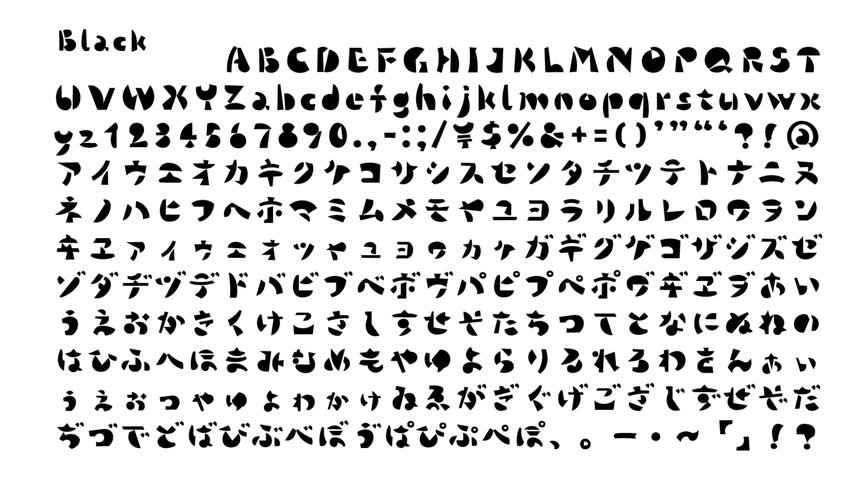 Black
ABCDEFGHIJKLMNOPQRST
UVWXYZabcdefghijklmnopqrstuvwx
yz1234567890.,-:;/¥$%&+=()’”“‘?!@
アイウエオカキクケコサシスセソタチツテトナニヌ
ネノハヒフヘホマミムメモヤユヨラリルレロワヲン
ヰヱァィゥェォッャュョヮヵヶガギグゲゴザジズゼ
ゾダヂヅデドバビブベボヴパピプペポヷヸヹヺあい
うえおかきくけこさしすせそたちつてとなにぬねの
はひふへほまみむめもやゆよらりるれろわをんぁぃ
ぅぇぉっゃゅょゎゕゖゐゑがぎぐげござじずぜぞだ
ぢづでどばびぶべぼゔぱぴぷぺぽ、。ー・〜「」！？